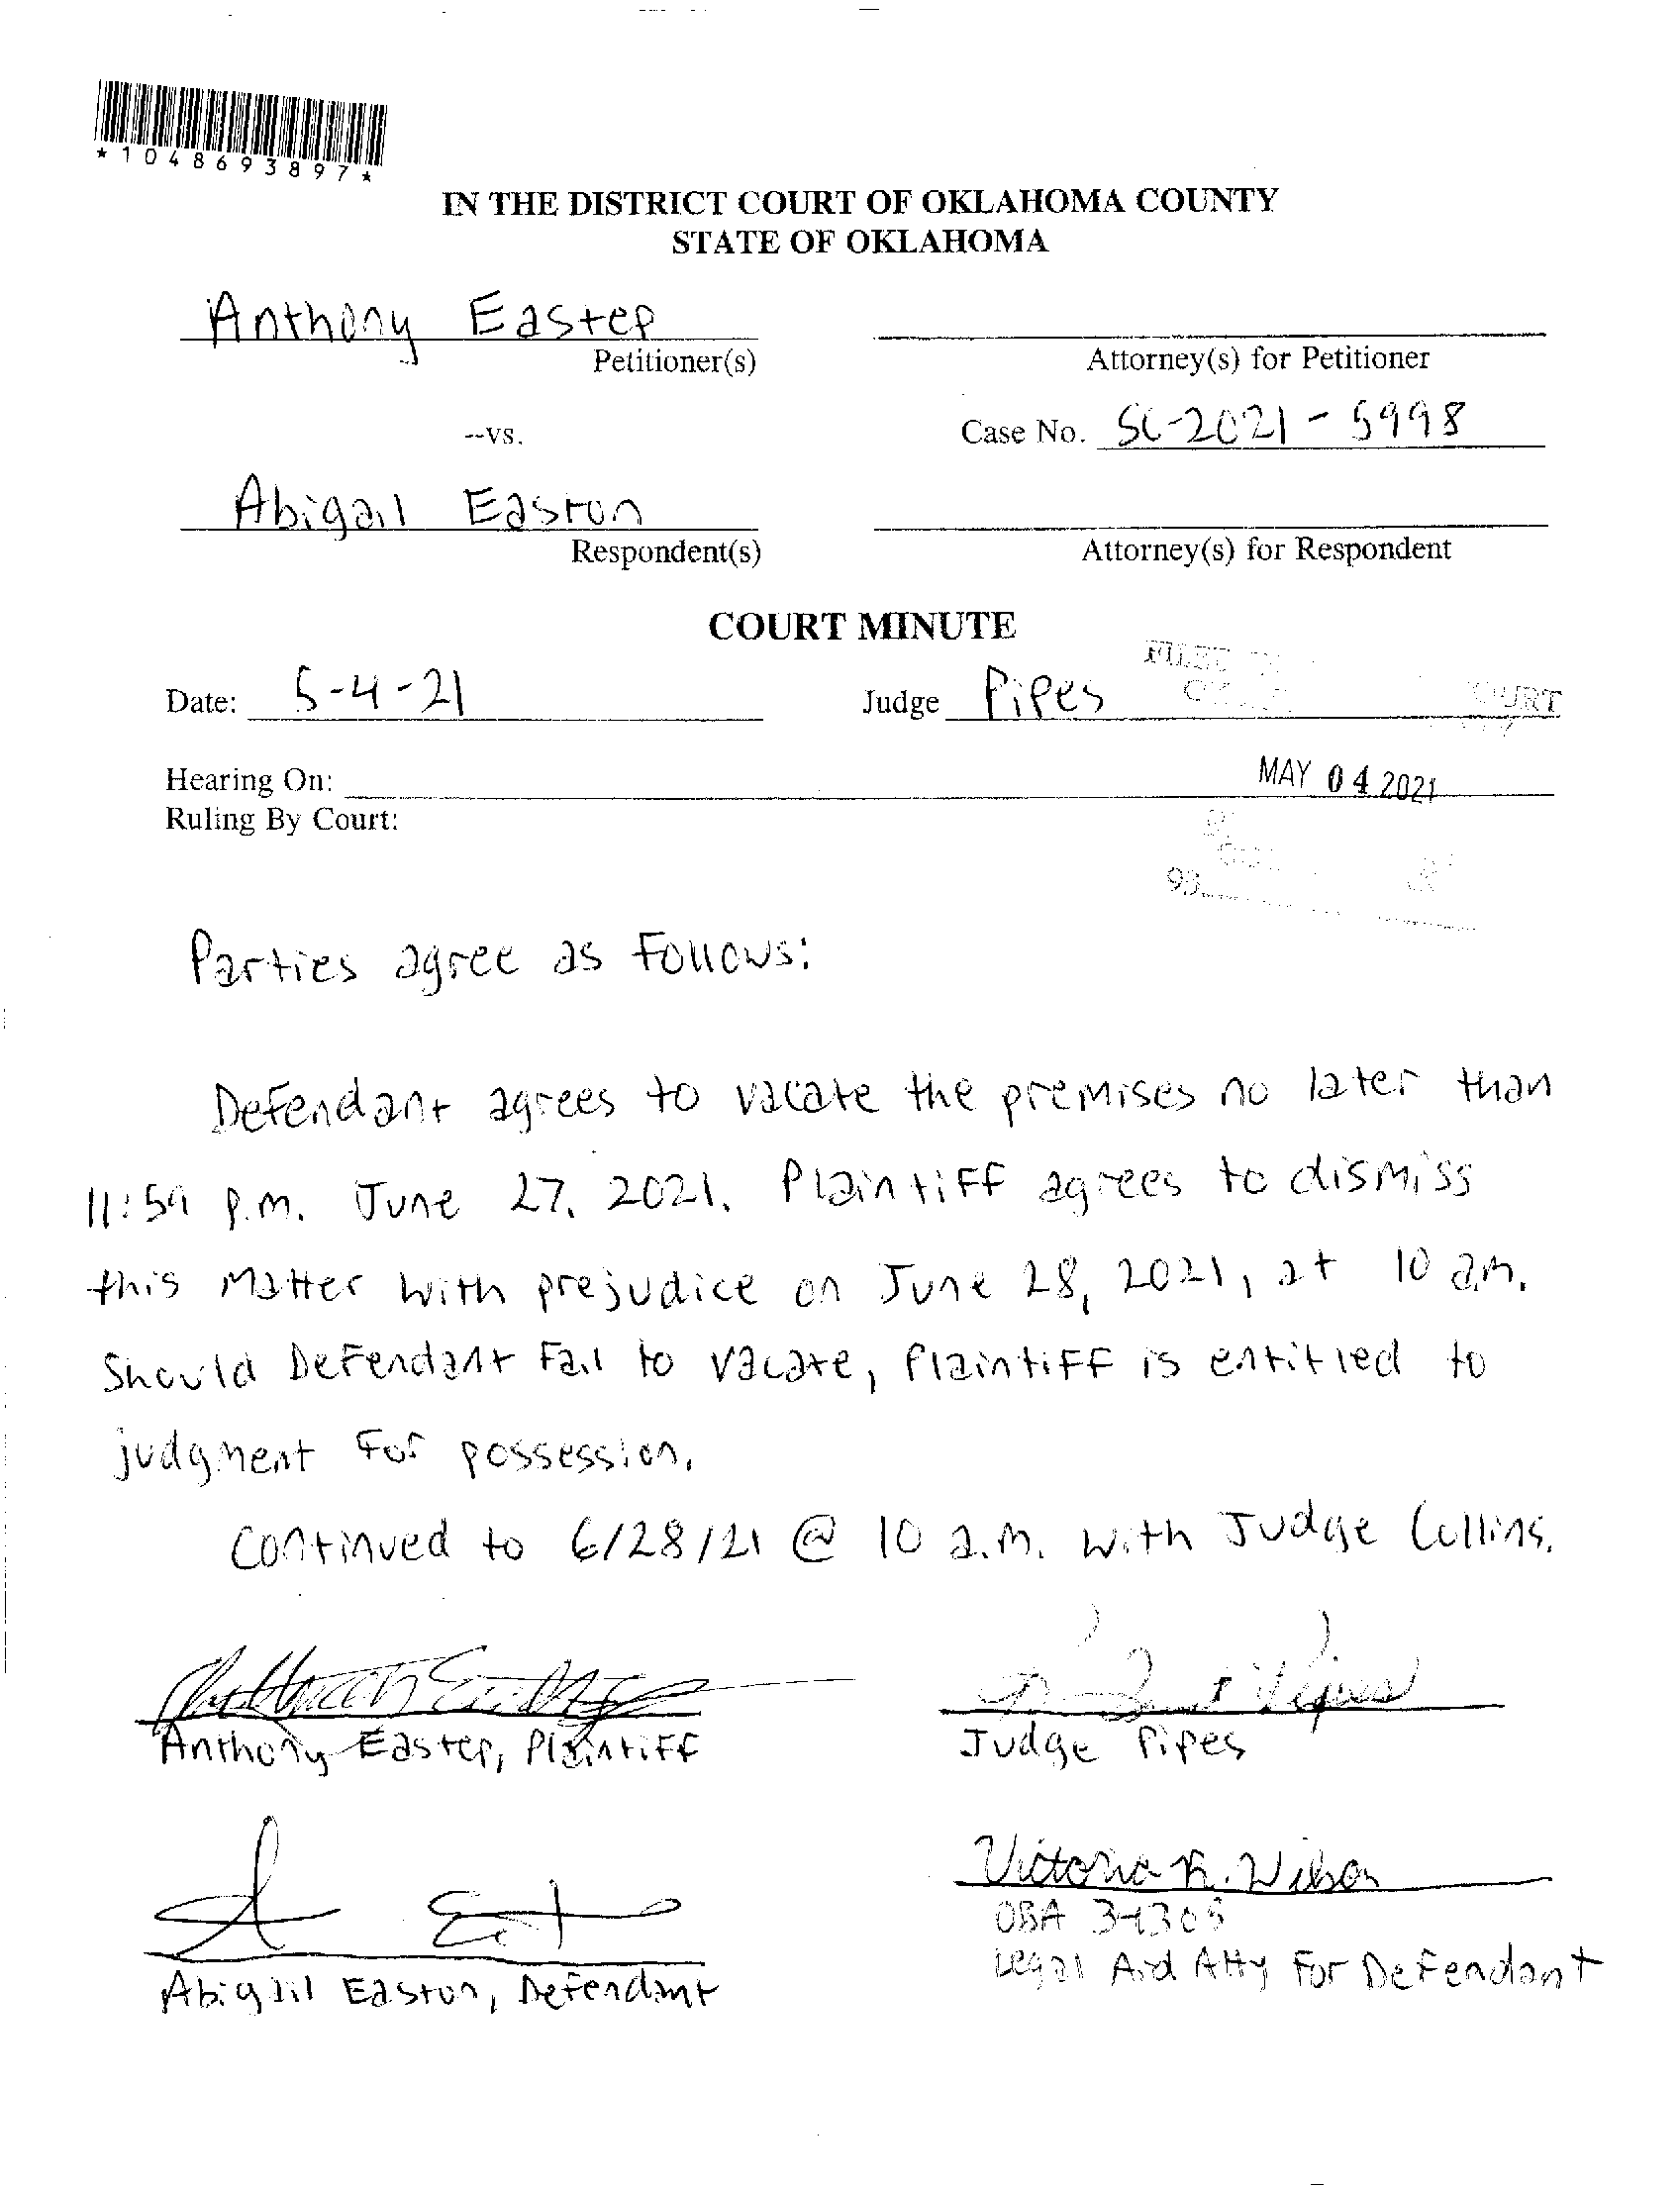 *1048693897*
IN THE DISTRICT COURT OF OKLAHOMA COUNTY
STATE OF OKLAHOMA
Anthony Eastep
Petitioner(s)
Attorney(s) for Petitioner
--vs.
Case No. SC-2021-5998
Abigail Easton
Respondent(s)
Attorney(s) for Respondent
COURT MINUTE
FILED
COURT
Date: 5-4-21
Judge Pipes
Hearing On:
MAY 04 2021
Ruling By Court:
Parties agree as follows:
Defendant agrees to vacate the premises no later than
11:59 p.m. June 27, 2021. Plaintiff agrees to dismiss
this matter with prejudice on June 28, 2021, at 10 a.m.
Should Defendant fail to vacate, Plaintiff is entitled to
judgment for possession.
Continued to 6/28/21 @ 10 a.m. with Judge Collins.
Anthony Eastep, Plaintiff
Judge Pipes
Victoria R. Wilson
OBA 34305
Legal Aid Atty for Defendant
Abigail Easton, Defendant